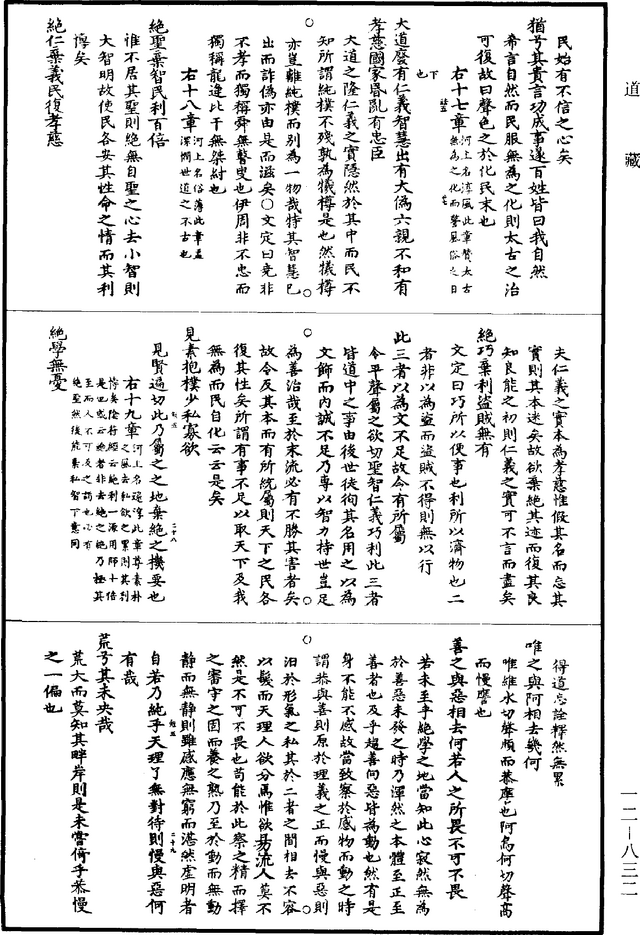 道藏
民始有不信之心矣
猶兮其貴言功成事遂百姓皆曰我自然
希言自然而民服無為之化則太古之治
可復故曰聲色之於化民末也
右十七章河上名淳風此章贊太古無為之化而警風俗之日下也
大道廢有仁義智慧出有大偽六親不和有
孝慈國家昏亂有忠臣
大道之隆仁義之實隱然於其中而民不
知所謂純樸不殘孰為犧樽是也然犧樽
亦豈離純樸而別為一物哉特其智慧已
出而詐偽亦由是而滋矣○文定曰堯非
不孝而獨稱舜無瞽叟也伊周非不忠而
獨稱龍逄比干無桀紂也
右十八章河上名俗薄此章蓋深憫世道之不古也
絕聖棄智民利百倍
惟不居其聖則絕無自聖之心去小智則
大智明故使民各安其性命之情而其利
愽矣
絕仁棄義民復孝慈
夫仁義之實本為孝慈惟假其名而忘其
實則其本迷矣故欲棄絕其迹而復其良
知良能之初則仁義之實可不言而盡矣
絕巧棄利盜賊無有
文定曰巧所以便事也利所以濟物也二
者非以為盜而盜賊不得則無以行
此三者以為文不足故令有所屬
令平聲屬之欲切聖智仁義巧利此三者
皆道中之事由後世徒徇其名用之以為
文飾而內誠不足乃專以智力持世豈足
為善治哉至於末流必有不勝其害者矣
故令反其本而有所統屬則天下之民各
復其性矣所謂有事不足以取天下及我
無為而民自化云云是矣
見素抱樸少私寡欲
見賢遍切此乃屬之之地棄絕之樸妥也
右十九章河上名還淳此章尊素朴之風去私欲之累
絕學無憂
得道忘詮釋然無累
唯之與阿相去幾何
唯維水切聲順而恭阿烏何切聲高
而慢讐也
善之與惡相去何若人之所畏不可不畏
若未至乎絕學之地當知此心寂然無為
於善惡未發之時乃渾然之本體至正至
善者也及乎趨善向惡皆為動也然有是
身不能不感故當致察於感物而動之時
謂恭與善則原於理義之正而慢與惡則
汨於形氣之私其於二者之間相去不容
以髮而天理人欲分焉惟欲易流人莫不
然是不可不畏也苟能於此察之精而擇
之審守之固而養之熟乃至於動而無動
靜而無靜則雖感應無窮而湛然虛明者
自若乃純乎天理了無對待則慢與惡何
有哉
荒兮其未央哉
荒大而莫知其畔岸則是未嘗倚乎恭慢
之一偏也
一二—八三二